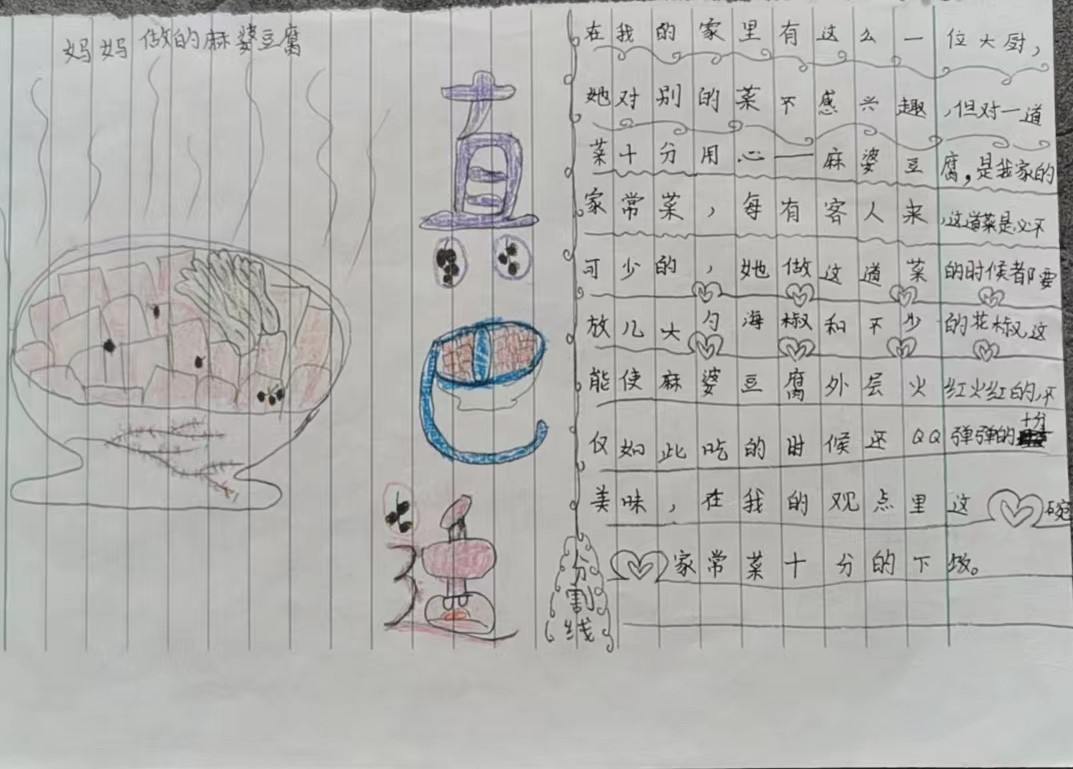 妈妈做的麻婆豆腐
真
巴
适
在我的家里有这么一位大厨，
她对别的菜不感兴趣，但对一道
菜十分用心——麻婆豆腐，是我家的
家常菜，每有客人来，这道菜是必不
可少的，她做这道菜的时候都要
放几大勺海椒和不少的花椒，这
能使麻婆豆腐外层火红火红的，不
仅如此吃的时候还QQ弹弹的十分
美味，在我的观点里这碗
家常菜十分的下饭。
分割线